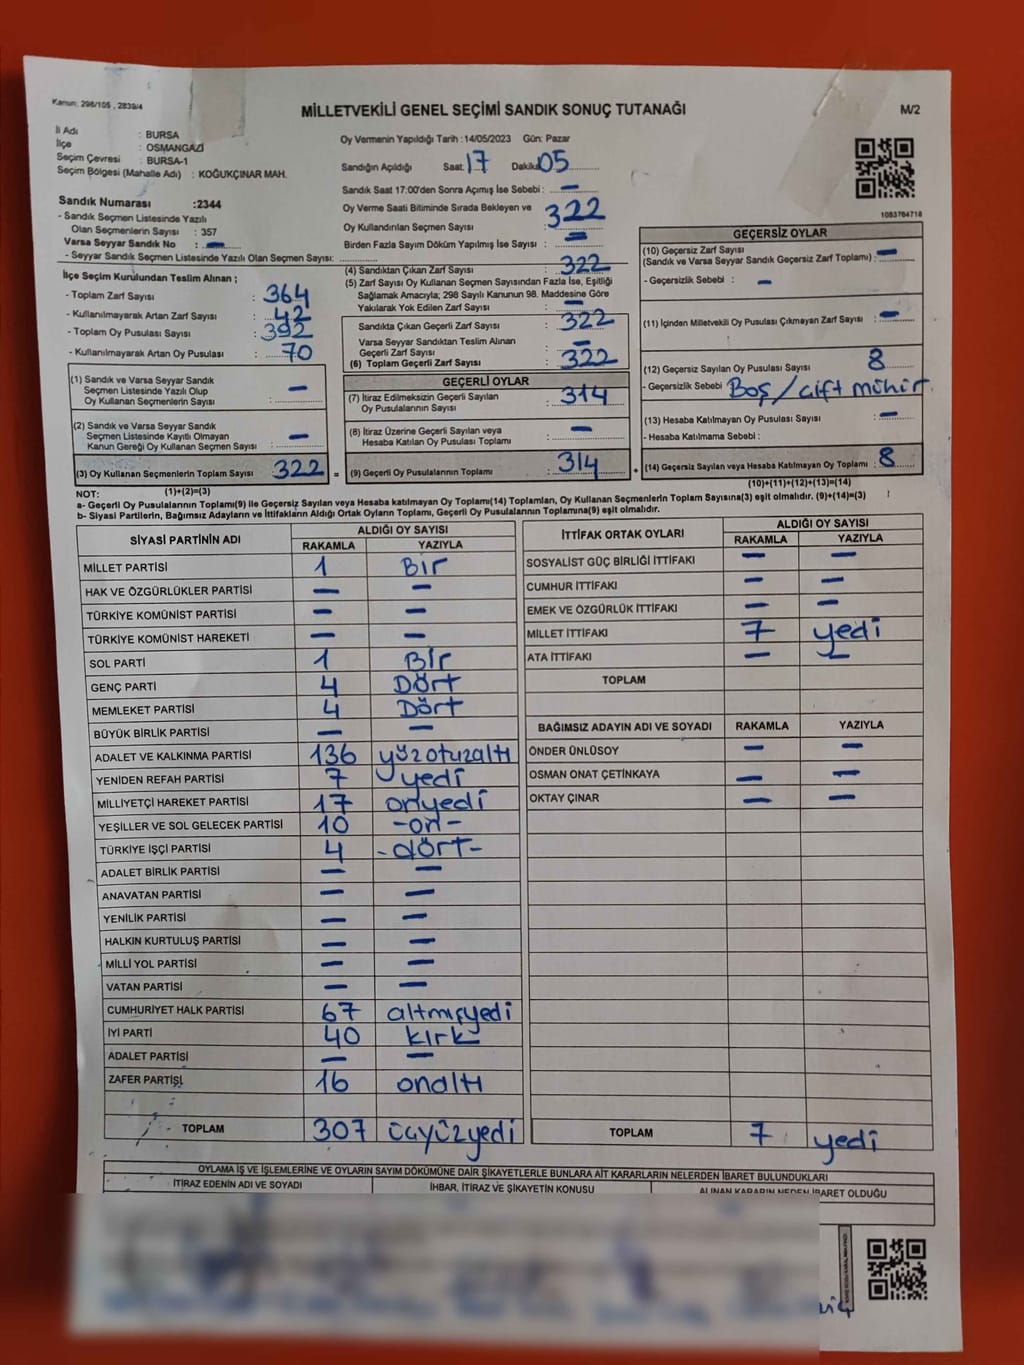 Kanun: 298/105 , 2839/4
MİLLETVEKİLİ GENEL SEÇİMİ SANDIK SONUÇ TUTANAĞI
M/2
İl Adı : BURSA
İlçe : OSMANGAZİ
Seçim Çevresi : BURSA-1
Seçim Bölgesi (Mahalle Adı) : KOĞUKÇINAR MAH.
Sandık Numarası :2344
- Sandık Seçmen Listesinde Yazılı
Olan Seçmenlerin Sayısı : 357
Varsa Seyyar Sandık No : —
- Seyyar Sandık Seçmen Listesinde Yazılı Olan Seçmen Sayısı:
Oy Vermenin Yapıldığı Tarih :14/05/2023 Gün: Pazar
Sandığın Açıldığı Saat: 17 Dakika: 05
Sandık Saat 17:00'den Sonra Açımış İse Sebebi : —
Oy Verme Saati Bitiminde Sırada Bekleyen ve
Oy Kullandırılan Seçmen Sayısı : 322
Birden Fazla Sayım Döküm Yapılmış İse Sayısı : —
1083764718
İlçe Seçim Kurulundan Teslim Alınan ;
- Toplam Zarf Sayısı : 364
- Kullanılmayarak Artan Zarf Sayısı : 42
- Toplam Oy Pusulası Sayısı : 392
- Kullanılmayarak Artan Oy Pusulası : 70
(1) Sandık ve Varsa Seyyar Sandık
Seçmen Listesinde Yazılı Olup
Oy Kullanan Seçmenlerin Sayısı : —
(2) Sandık ve Varsa Seyyar Sandık
Seçmen Listesinde Kayıtlı Olmayan
Kanun Gereği Oy Kullanan Seçmen Sayısı : —
(3) Oy Kullanan Seçmenlerin Toplam Sayısı : 322 =
(1)+(2)=(3)
(4) Sandıktan Çıkan Zarf Sayısı : 322
(5) Zarf Sayısı Oy Kullanan Seçmen Sayısından Fazla İse, Eşitliği
Sağlamak Amacıyla; 298 Sayılı Kanunun 98. Maddesine Göre
Yakılarak Yok Edilen Zarf Sayısı : —
Sandıkta Çıkan Geçerli Zarf Sayısı : 322
Varsa Seyyar Sandıktan Teslim Alınan
Geçerli Zarf Sayısı : —
(6) Toplam Geçerli Zarf Sayısı : 322
GEÇERLİ OYLAR
(7) İtiraz Edilmeksizin Geçerli Sayılan
Oy Pusulalarının Sayısı : 314
(8) İtiraz Üzerine Geçerli Sayılan veya
Hesaba Katılan Oy Pusulası Toplamı : —
(9) Geçerli Oy Pusulalarının Toplamı : 314 +
GEÇERSİZ OYLAR
(10) Geçersiz Zarf Sayısı
(Sandık ve Varsa Seyyar Sandık Geçersiz Zarf Toplamı) : —
- Geçersizlik Sebebi : —
(11) İçinden Milletvekili Oy Pusulası Çıkmayan Zarf Sayısı : —
(12) Geçersiz Sayılan Oy Pusulası Sayısı : 8
- Geçersizlik Sebebi Boş / çift mühür
(13) Hesaba Katılmayan Oy Pusulası Sayısı : —
- Hesaba Katılmama Sebebi :
(14) Geçersiz Sayılan veya Hesaba Katılmayan Oy Toplamı : 8
(10)+(11)+(12)+(13)=(14)
NOT:
a- Geçerli Oy Pusulalarının Toplamı(9) ile Geçersiz Sayılan veya Hesaba katılmayan Oy Toplamı(14) Toplamları, Oy Kullanan Seçmenlerin Toplam Sayısına(3) eşit olmalıdır. (9)+(14)=(3)
b- Siyasi Partilerin, Bağımsız Adayların ve İttifakların Aldığı Ortak Oyların Toplamı, Geçerli Oy Pusulalarının Toplamına(9) eşit olmalıdır.
SİYASİ PARTİNİN ADI ALDIĞI OY SAYISI
RAKAMLA YAZIYLA
MİLLET PARTİSİ 1 Bir
HAK VE ÖZGÜRLÜKLER PARTİSİ — —
TÜRKİYE KOMÜNİST PARTİSİ — —
TÜRKİYE KOMÜNİST HAREKETİ — —
SOL PARTİ 1 Bir
GENÇ PARTİ 4 Dört
MEMLEKET PARTİSİ 4 Dört
BÜYÜK BİRLİK PARTİSİ — —
ADALET VE KALKINMA PARTİSİ 136 yüzotuzaltı
YENİDEN REFAH PARTİSİ 7 yedi
MİLLİYETÇİ HAREKET PARTİSİ 17 onyedi
YEŞİLLER VE SOL GELECEK PARTİSİ 10 -on-
TÜRKİYE İŞÇİ PARTİSİ 4 -dört-
ADALET BİRLİK PARTİSİ — —
ANAVATAN PARTİSİ — —
YENİLİK PARTİSİ — —
HALKIN KURTULUŞ PARTİSİ — —
MİLLİ YOL PARTİSİ — —
VATAN PARTİSİ — —
CUMHURİYET HALK PARTİSİ 67 altmışyedi
İYİ PARTİ 40 kırk
ADALET PARTİSİ — —
ZAFER PARTİSİ 16 onaltı
TOPLAM 307 üçyüzyedi
İTTİFAK ORTAK OYLARI ALDIĞI OY SAYISI
RAKAMLA YAZIYLA
SOSYALİST GÜÇ BİRLİĞİ İTTİFAKI — —
CUMHUR İTTİFAKI — —
EMEK VE ÖZGÜRLÜK İTTİFAKI — —
MİLLET İTTİFAKI 7 yedi
ATA İTTİFAKI — —
TOPLAM
BAĞIMSIZ ADAYIN ADI VE SOYADI RAKAMLA YAZIYLA
ÖNDER ÜNLÜSOY — —
OSMAN ONAT ÇETİNKAYA — —
OKTAY ÇINAR — —
TOPLAM 7 yedi
OYLAMA İŞ VE İŞLEMLERİNE VE OYLARIN SAYIM DÖKÜMÜNE DAİR ŞİKAYETLERLE BUNLARA AİT KARARLARIN NELERDEN İBARET BULUNDUKLARI
İTİRAZ EDENİN ADI VE SOYADI İHBAR, İTİRAZ VE ŞİKAYETİN KONUSU ALINAN KARARIN NEDEN İBARET OLDUĞU